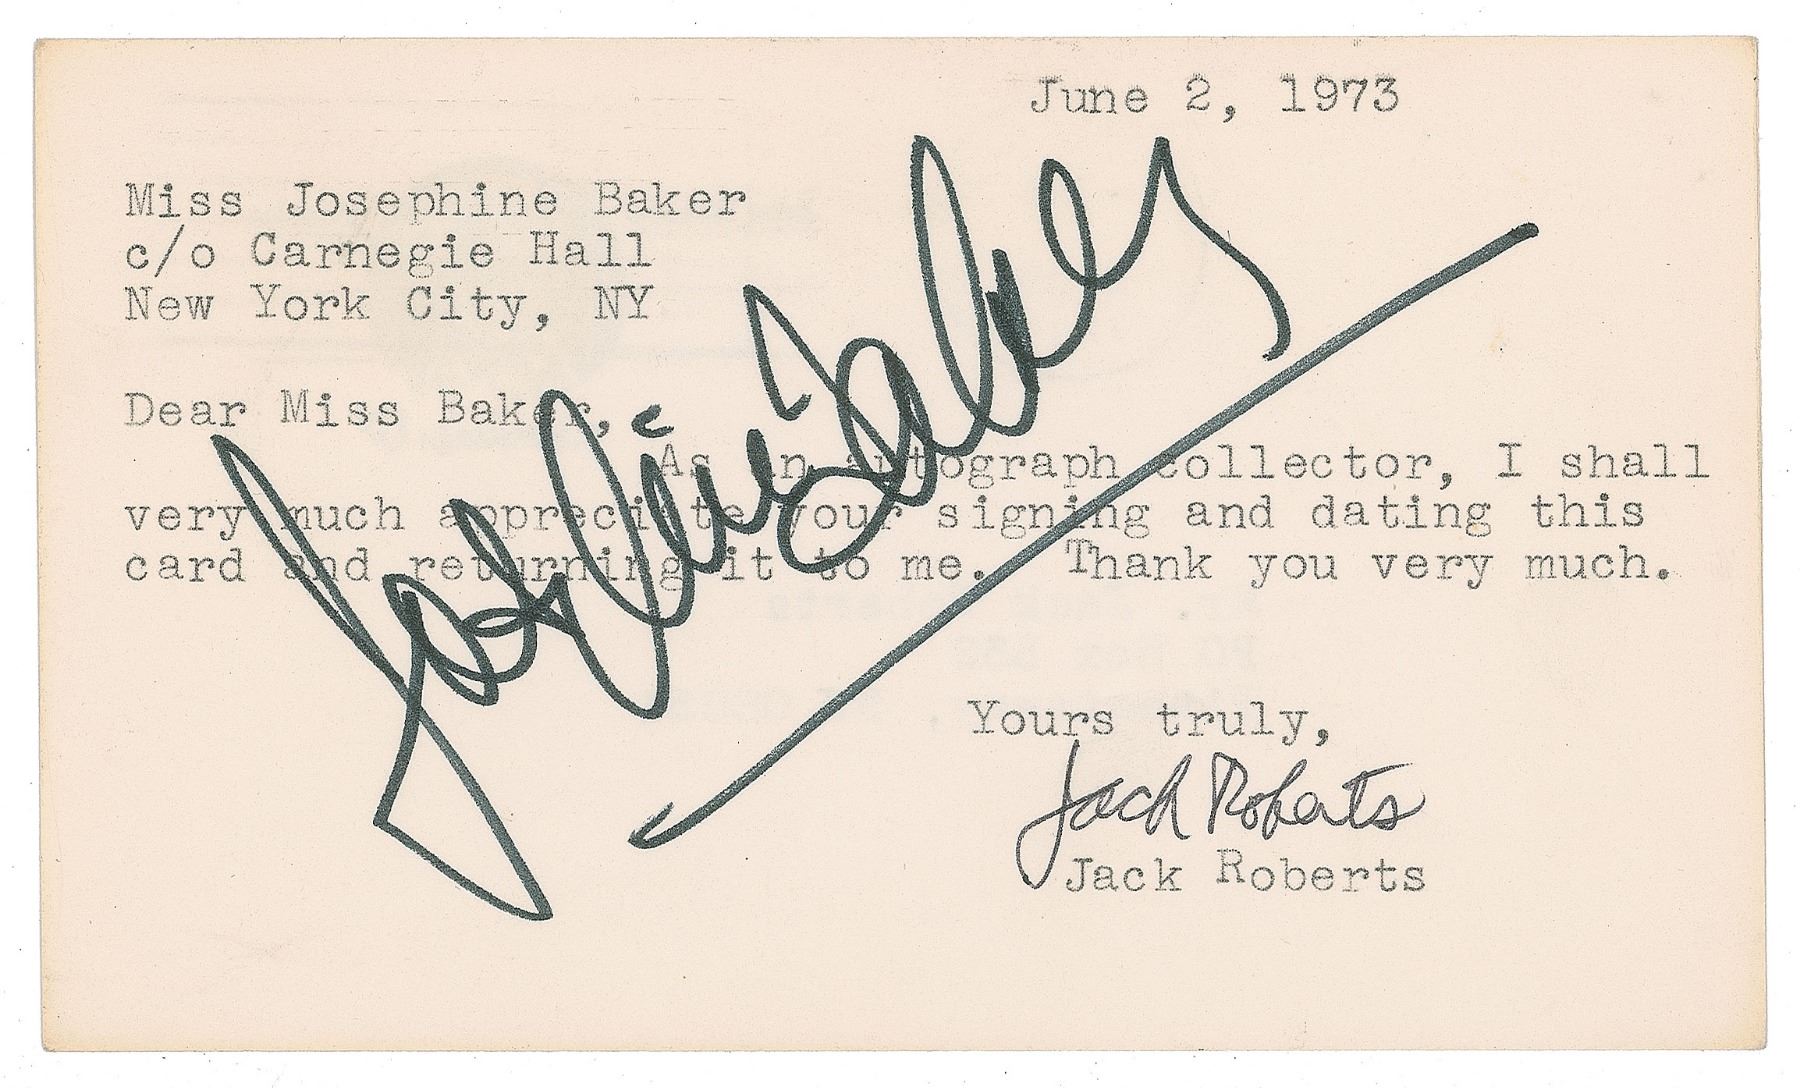 June 2, 1973
Miss Josephine Baker
c/o Carnegie Hall
New York City, NY
Dear Miss Baker,
As an autograph collector, I shall
very much appreciate your signing and dating this
card and returning it to me. Thank you very much.
Josephine Baker
Yours truly,
Jack Roberts
Jack Roberts